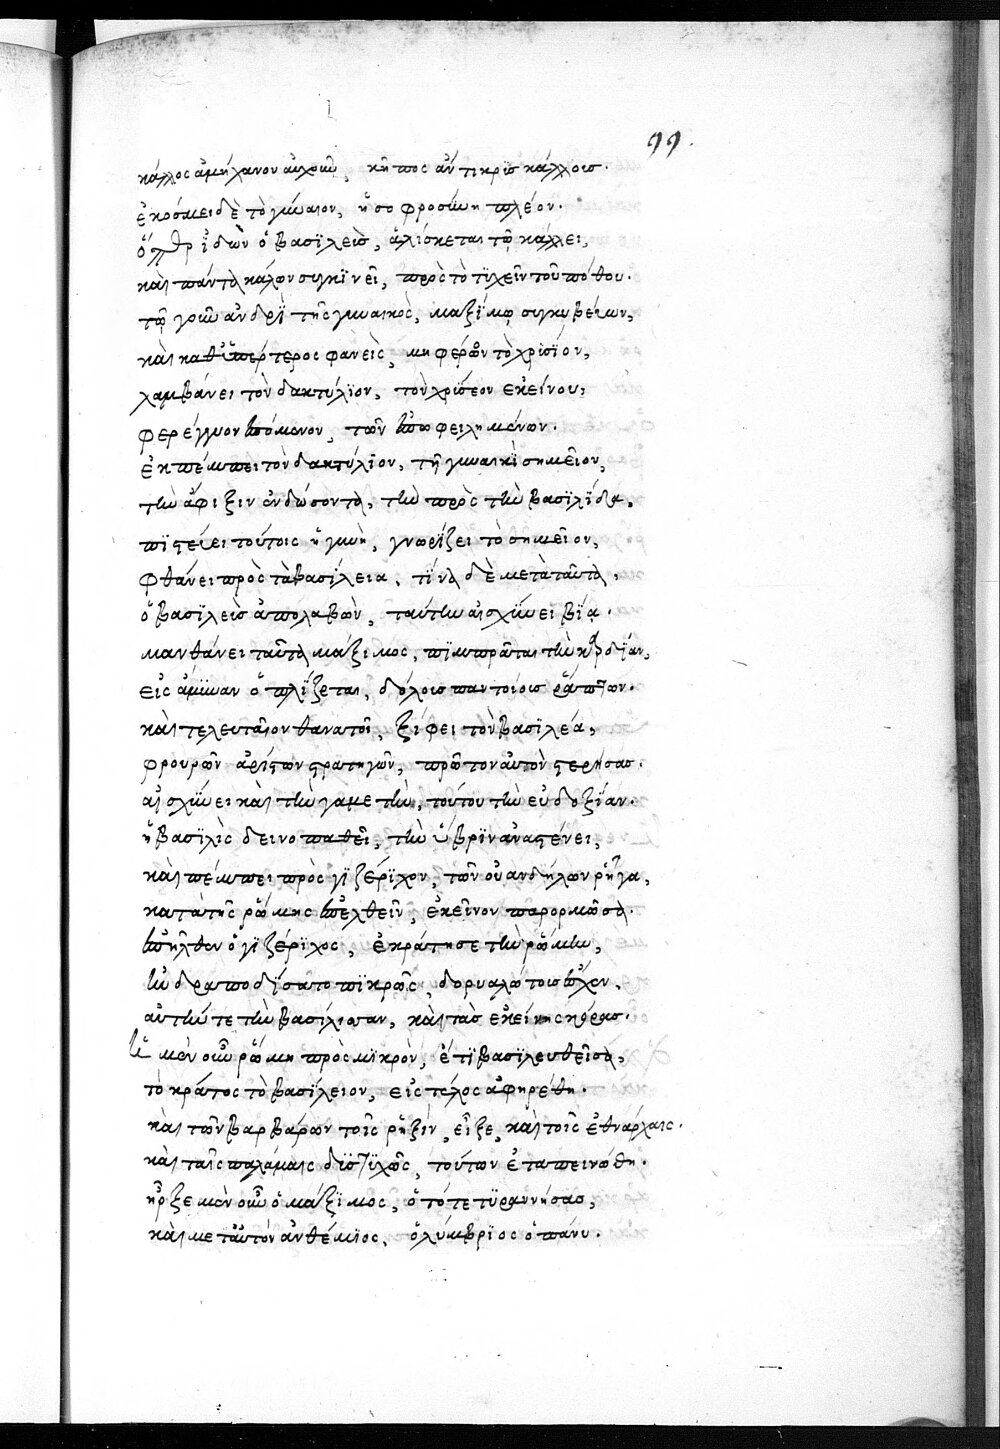 99.
κάλλος ἀμήχανον αὐχοῦν, κῆπος ἀντικρὺς κάλλοις.
ἐκόσμει δὲ τὸ γύναιον, ἡ σωφροσύνη πλέον.
ὅπερ ἰδὼν ὁ βασϊλεὺς, ἁλίσκεται τῷ κάλλει,
καὶ πάντα κάλων συγκϊνεῖ, πρὸς τὸ τϋχεῖν τοῦ πόθου.
τῷ γοῦν ἀνδρῒ τῆς γυναικὸς, μαξΐμῳ συγκυβεύων,
καὶ καθυπέρτερος φανεὶς, μὴ φέρων τὸ χρυσΐον,
λαμβάνει τὸν δακτύλϊον, τὸν χρύσεον ἐκείνου,
φερέγγυον ἑπόμενον, τῶν ἐποφειλημένων.
ἐκπέμπει τὸν δακτύλϊον, τῇ γυναικὶ σημεῖον,
τὴν ἄφιξιν ἐνδώσοντα, τὴν πρὸς τὴν βασιλΐδα,
πϊστεύει τούτοις ἡ γυνὴ, γνωρίζει τὸ σημεῖον,
φθάνει πρὸς τὰ βασΐλεια, τΐνα δὲ μετὰ ταῦτα,
ὁ βασϊλεὺς ἀπολαβὼν, ταύτην αἰσχύνει βΐᾳ.
μανθάνει ταῦτα μάξιμος, πϊμπρᾶται τὴν καρδΐαν,
εἰς ἄμϋναν ὁπλΐζεται, δόλοις παντοίοις ῥάπτων.
καὶ τελευταῖον θανατοῖ, ξΐφει τὸν βασϊλέα,
φρουρῶν ἀρίστων στρατηγῶν, πρῶτον αὐτὸν στερήσας.
αἰσχύνει καὶ τὴν γαμετὴν, τούτου τὴν εὐδοξΐαν.
ἡ βασϊλὶς δεινοπαθεῖ, τὴν ὕβρϊν ἀναστένει,
καὶ πέμπει πρὸς γϊζέρϊχον, τῶν οὐανδήλων ῥῆγα,
κατὰ τῆς ῥώμης ἐπελθεῖν, ἐκεῖνον παρορμῶσα.
ἐπῆλθεν ὁ γϊζέρϊχος, ἐκράτησε τὴν ῥώμην,
ἠνδραποδΐσατο πϊκρῶς, δορυαλώτους ἔσχεν,
αὐτήν τε τὴν βασΐλισσαν, καὶ τὰς ἐκείνης κόρας.
ἡ μὲν οὖν ῥώμη πρὸς μϊκρὸν, ἔτϊ βασϊλευθεῖσα,
τὸ κράτος τὸ βασΐλειον, εἰς τέλος ἀφηρέθη.
καὶ τῶν βαρβάρων τοῖς ῥηξὶν, εἶξε, καὶ τοῖς ἐθνάρχαις.
καὶ ταῖς παλάμαις δϋστϋχῶς, τούτων ἐταπεινώθη.
ἦρξε μὲν οὖν ὁ μάξϊμος, ὁ τότε τϋραννήσας,
καὶ μετ αὐτὸν ἀνθέμιος, ὀλύμβρϊος ὁ πάνυ.